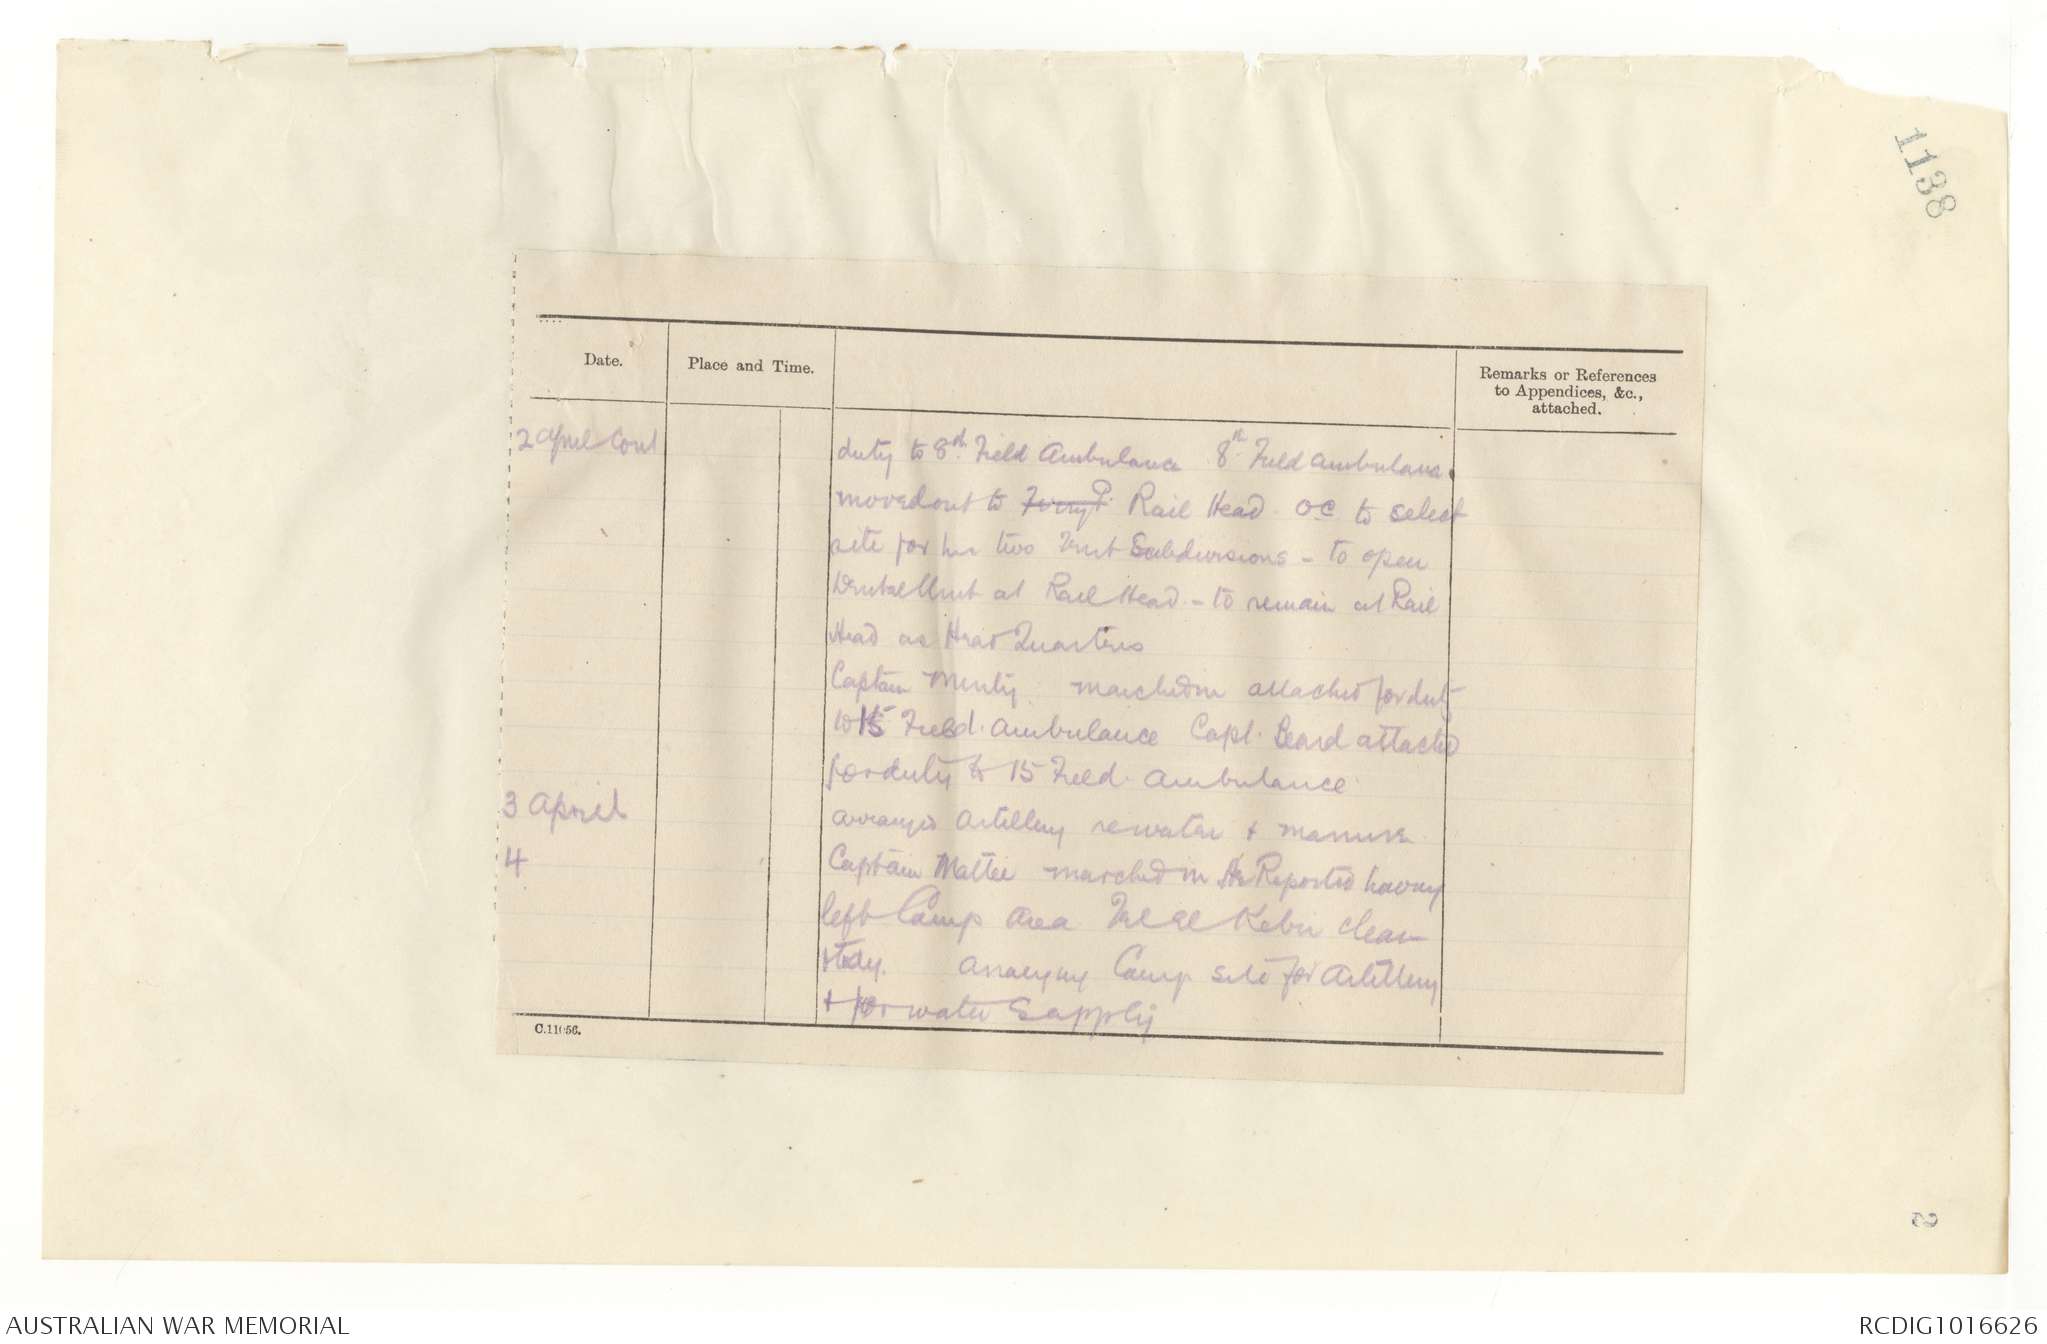 1138
Date.
Place and Time.
Remarks or References
to Appendices, &c.,
attached.
2 April Cont
duty to 8th. Field Ambulance 8th Field Ambulance
moved out to Ferry P. Rail Head. OC to select
site for his two Tent Subdivisions - to open
Dental Unit at Rail Head - to remain at Rail
Head as Head Quarters
Captain marched in attached for duty
to 15 Field. Ambulance Capt. Beard attached
for duty to 15 Field. Ambulance
3 April
arranged Artillery re water & manure
4
Captain marched in He Reported having
left Camp Area Tel El Kebir clean
& tidy. Arranging Camp site for Artillery
& for water Supply
C.11056.
AUSTRALIAN WAR MEMORIAL
RCDIG1016626